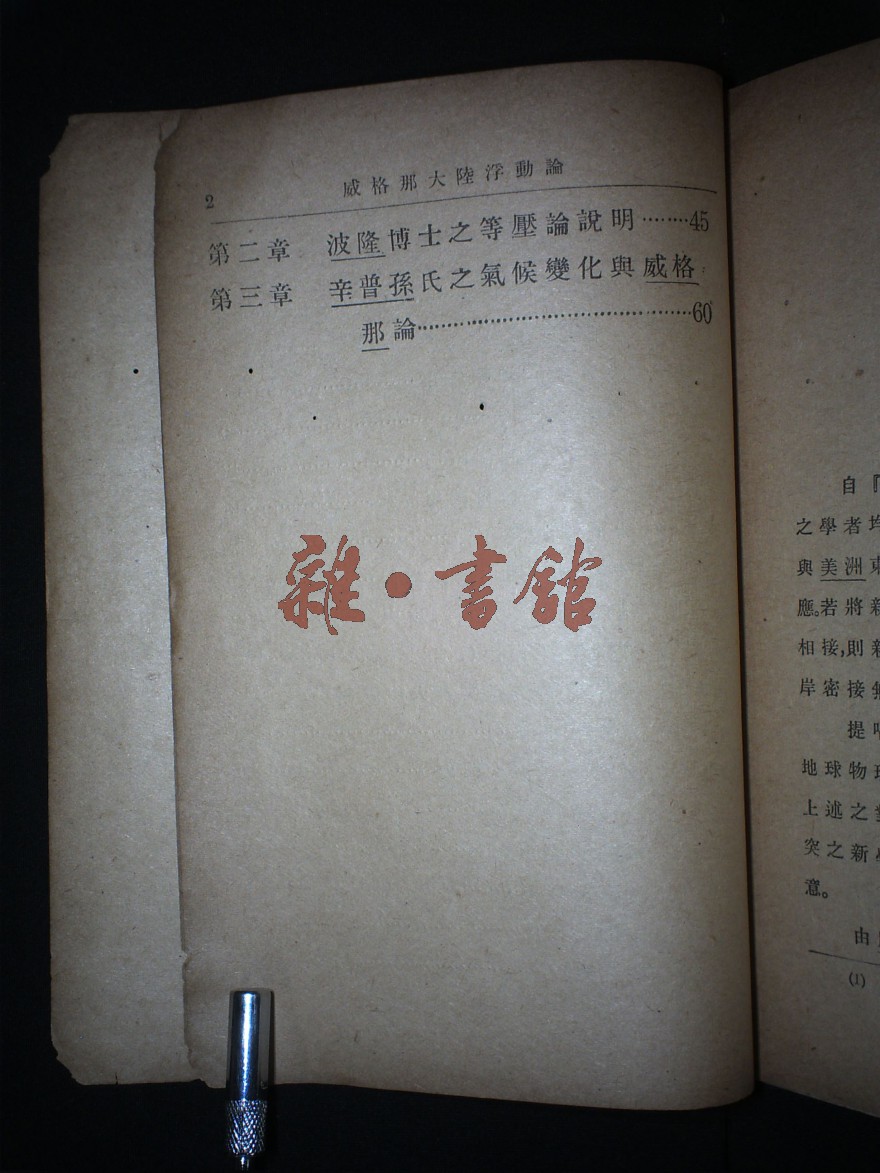 2 威格那大陸浮動論
第二章 波隆博士之等壓論說明········45
第三章 辛普孫氏之氣候變化與威格
那論········································60
雜·書館
自『
之學者均
與美洲東
應。若將新
相接,則新
岸密接
提
地球物理
上述之
突之新
意。
由
(1)